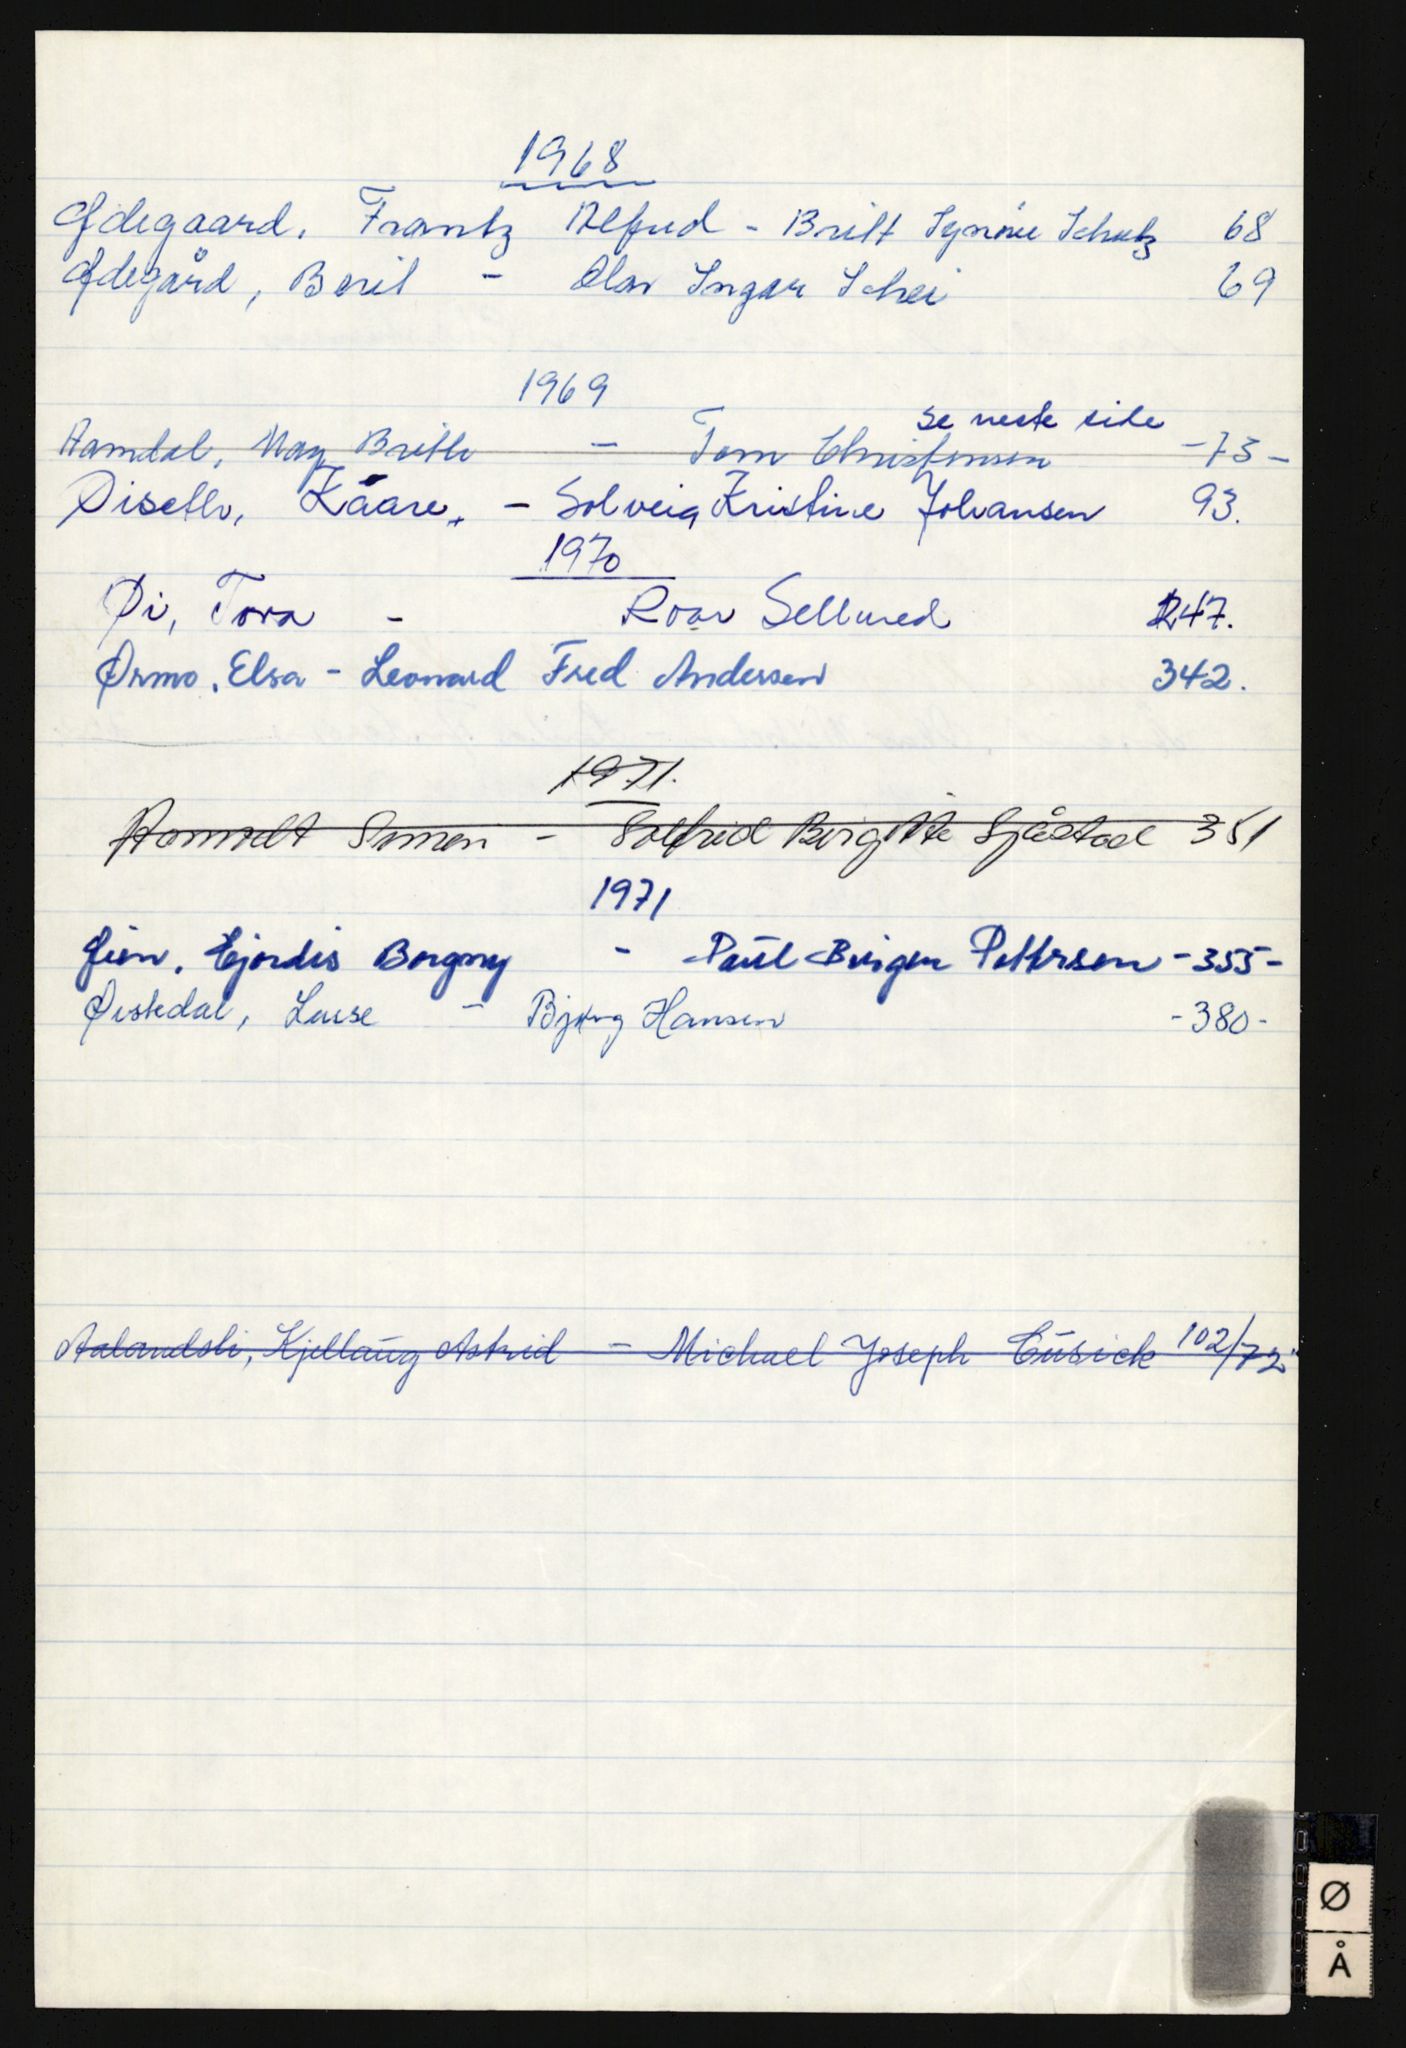 1968
Ødegaard, Frantz Alfred - Britt Synøve Schutz 68
Ødegård, Beril - Olav Ingar Schei 69
1969
se neste side
Aamdal, May Brith - Tom Christensen -73-
Øiseth, Kåare. - Solveig Kristine Johansen 93.
1970
Øi, Tora - Roar Sellured 247.
Ørmo, Elsa - Leonard Fred Andersen 342.
1971.
Aamodt Simen - Solfrid Birgitte Sjåstad 351
1971
Øien, Hjørdis Borgny - Paul Birger Pettersen -355-
Øiskdal, Luise - Bjørg Hansen -380-
Aalandsli, Kjellaug Astrid - Michael Joseph Cusick 102/72
Ø
Å